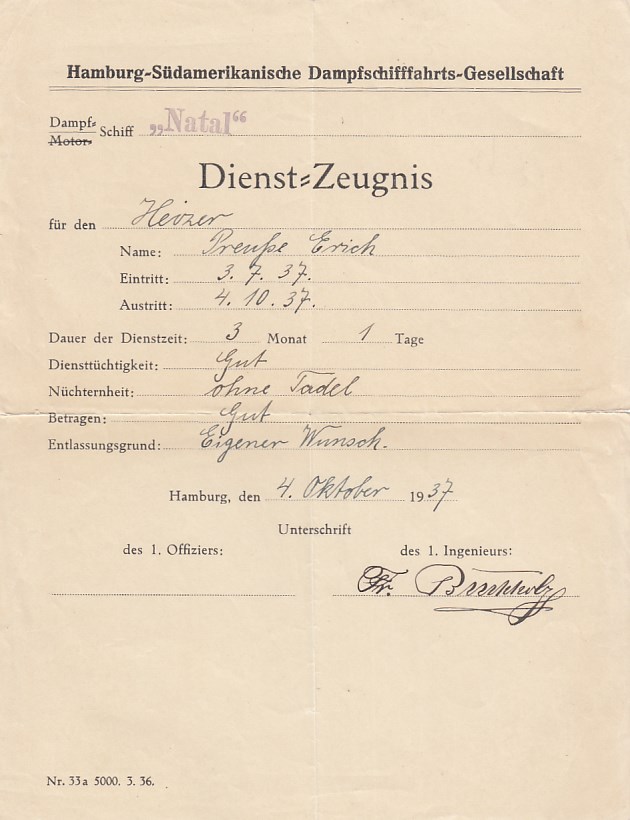 Hamburg-Südamerikanische Dampfschifffahrts-Gesellschaft
Dampf-
Motor- Schiff „Natal“
Dienst-Zeugnis
für den Heizer
Name: Preuße Erich
Eintritt: 3. 7. 37.
Austritt: 4. 10. 37.
Dauer der Dienstzeit: 3 Monat 1 Tage
Diensttüchtigkeit: Gut
Nüchternheit: ohne Tadel
Betragen: Gut
Entlassungsgrund: Eigener Wunsch.
Hamburg, den 4. Oktober 1937
Unterschrift
des 1. Offiziers: des 1. Ingenieurs:
Fr.
Nr. 33a 5000. 3. 36.